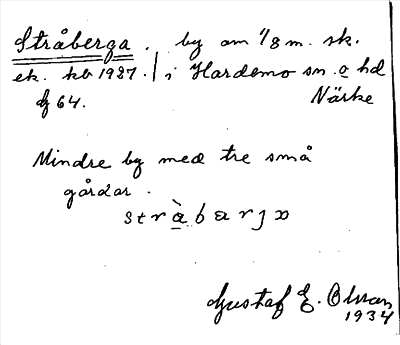 Stråberga. by om 1/8 m. sk.
ek. kb 1927. | i Hardemo sn. o hd
64. Närke
Mindre by med tre små
gårdar.
Gustaf E. Olsson
1934